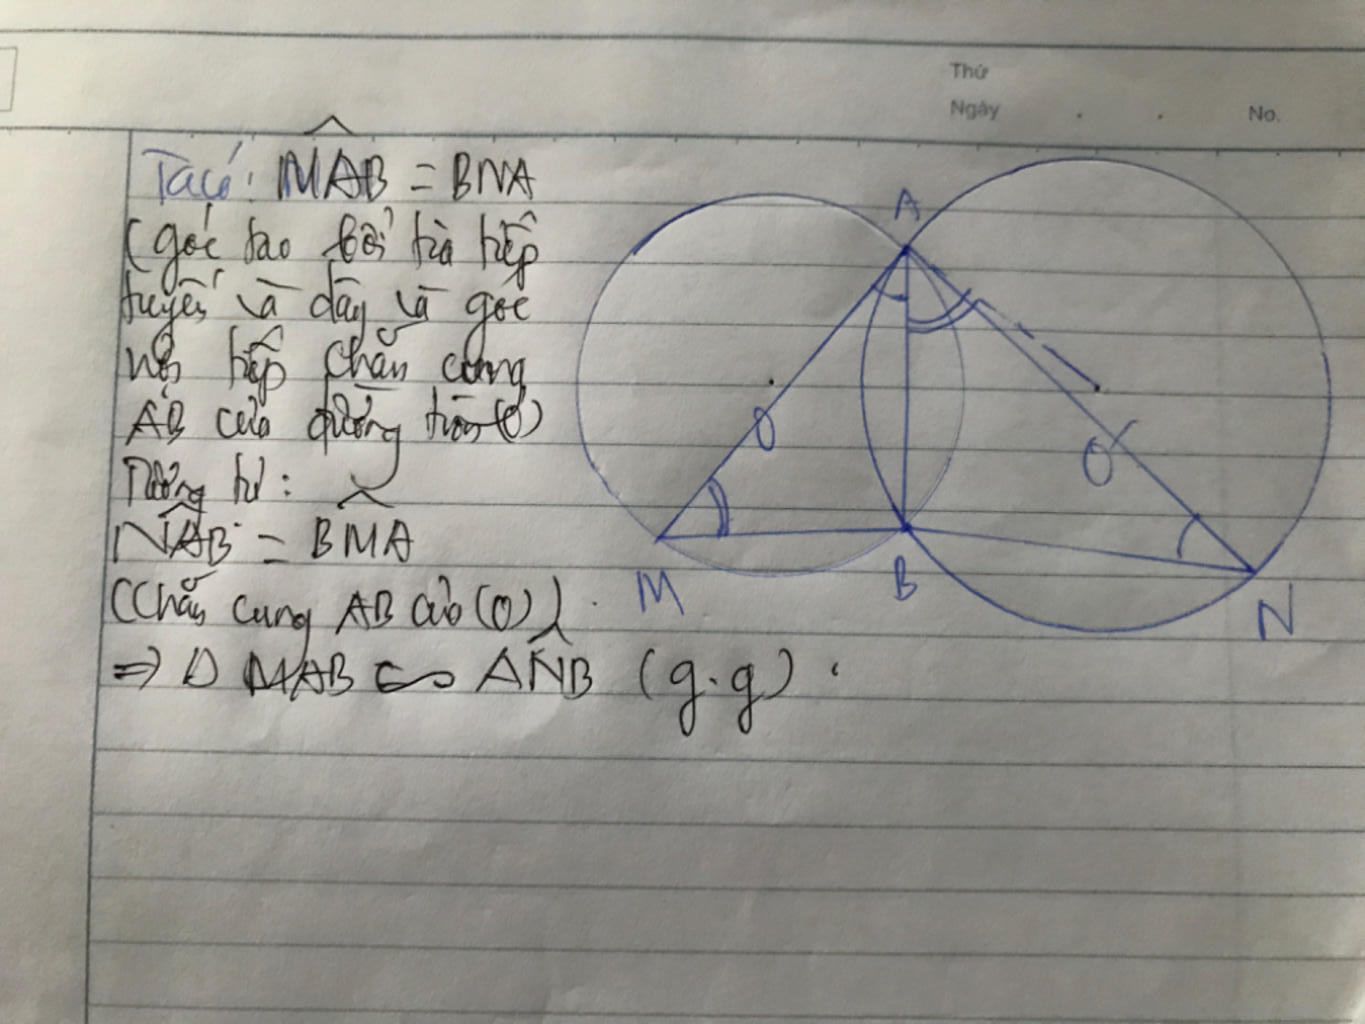 Thứ
Ngày . . No.
Ta có: MAB = BNA
(góc tạo bởi tia tiếp
tuyến và dây và góc
nội tiếp chắn cung
AB của đường tròn (O)
Tương tự:
NAB = BMA
(Chắn cung AB của (O)).
=> Δ MAB ∽ ANB (g.g).
A
O
O'
M
B
N